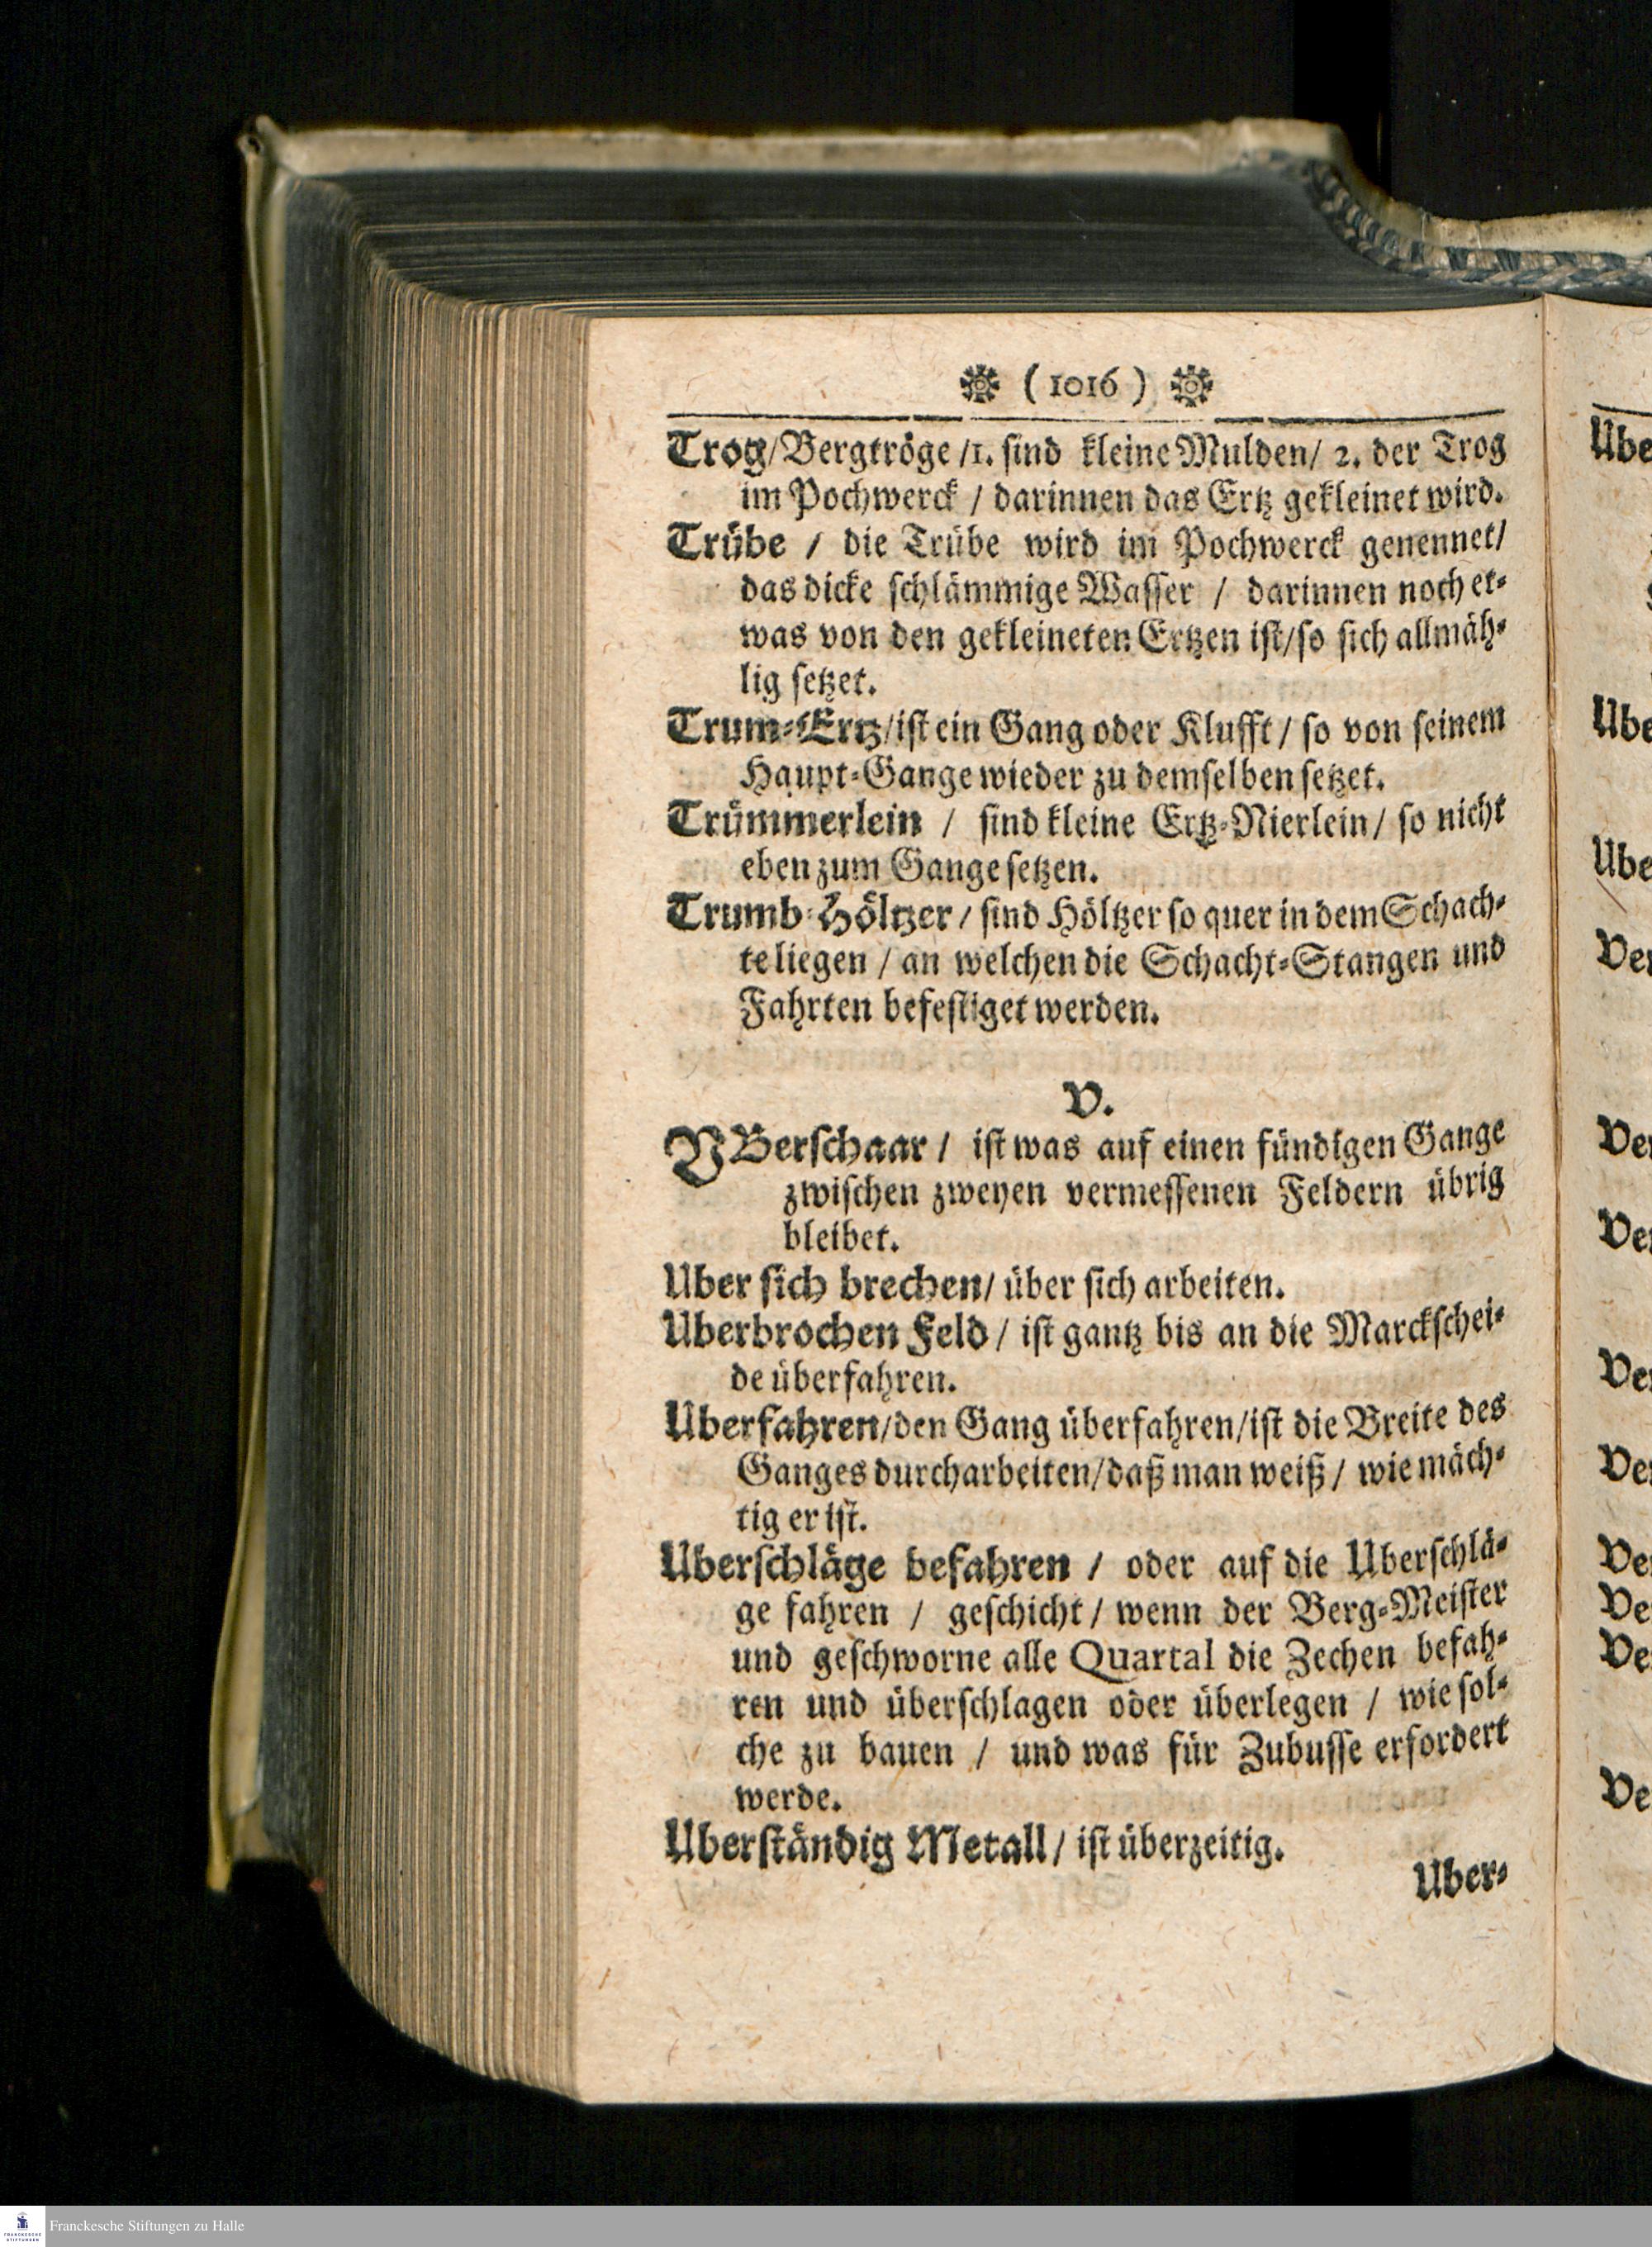 ( 1016 )
Trog/Bergtröge /1. sind kleine Mulden/ 2. der Trog
im Pochwerck / darinnen das Ertz gekleinet wird.
Trübe / die Trübe wird im Pochwerck genennet/
das dicke schlämmige Wasser / darinnen noch et-
was von den gekleineten Ertzen ist/so sich allmäh-
lig setzet.
Trum-Ertz/ist ein Gang oder Klufft / so von seinem
Haupt-Gange wieder zu demselben setzet.
Trümmerlein / sind kleine Ertz-Nierlein / so nicht
eben zum Gange setzen.
Trumb-Höltzer / sind Höltzer so quer in dem Schach-
te liegen / an welchen die Schacht-Stangen und
Fahrten befestiget werden.
V.
VBerschaar / ist was auf einen fündigen Gange
zwischen zweyen vermessenen Feldern übrig
bleibet.
Uber sich brechen/ über sich arbeiten.
Uberbrochen Feld / ist gantz bis an die Marckschei-
de überfahren.
Uberfahren/den Gang überfahren/ist die Breite des
Ganges durcharbeiten/daß man weiß / wie mäch-
tig er ist.
Uberschläge befahren / oder auf die Uberschlä-
ge fahren / geschicht / wenn der Berg-Meister
und geschworne alle Quartal die Zechen befah-
ren und überschlagen oder überlegen / wie sol-
che zu bauen / und was für Zubusse erfordert
werde.
Uberständig Metall / ist überzeitig.
Uber-
Ube
Ube
Ube
Ver
Ver
Ver
Ver
Ver
Ve
Ve
Ve
Ve
FRANCKESCHE
STIFTUNGEN
Franckesche Stiftungen zu Halle